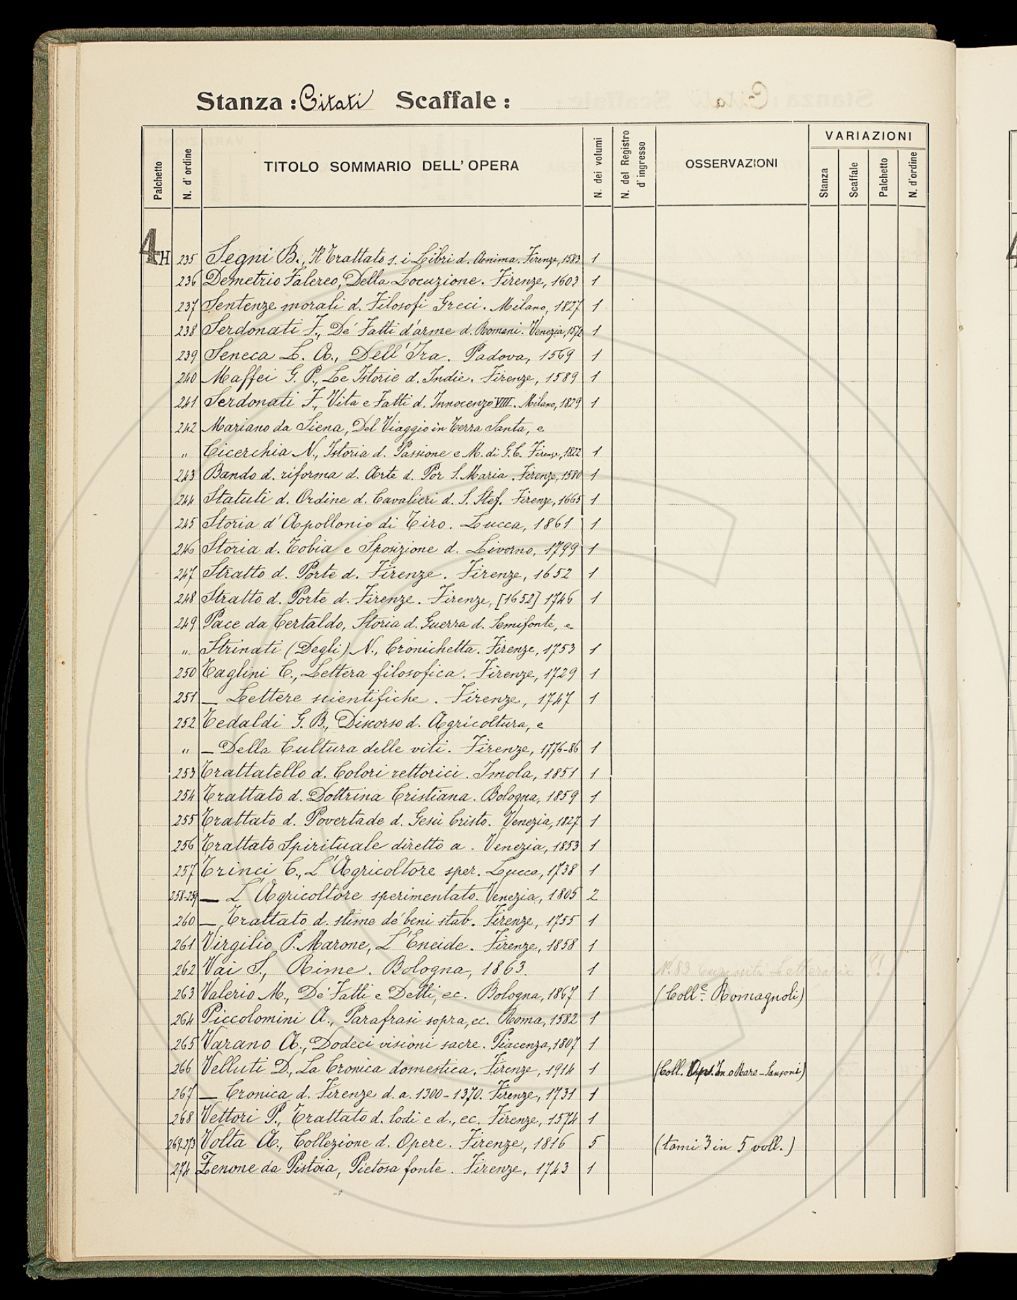 Stanza: Citati Scaffale:
Palchetto N. d'ordine TITOLO SOMMARIO DELL'OPERA N. dei volumi N. del Registro d'ingresso OSSERVAZIONI VARIAZIONI Stanza Scaffale Palchetto N. d'ordine
4H 235 Segni B., Il Trattato s. i Libri d. Anima. Firenze, 1583 1
236 Demetrio Falereo, Della Locuzione. Firenze, 1603 1
237 Sentenze morali d. Filosofi Greci. Milano, 1827 1
238 Serdonati F., De' Fatti d'arme d. Romani. Venezia, 1572 1
239 Seneca L. A., Dell'Ira. Padova, 1569 1
240 Maffei G. P., Le Istorie d. Indie. Firenze, 1589 1
241 Serdonati F., Vita e Fatti d. Innocenzo VIII. Milano, 1829 1
242 Mariano da Siena, Del Viaggio in Terra Santa, e
" Cicerchia N., Istoria d. Passione e M. di G. C. Firenz., 1822 1
243 Bando d. riforma d. Arte d. Por S. Maria. Firenze, 1580 1
244 Statuti d. Ordine d. Cavalieri d. S. Stef. Firenze, 1665 1
245 Storia d'Apollonio di Tiro. Lucca, 1861 1
246 Storia d. Tobia e Sposizione d. Livorno, 1799 1
247 Stratto d. Porte d. Firenze. Firenze, 1652 1
248 Stratto d. Porte d. Firenze. Firenze, [1652] 1746 1
249 Pace da Certaldo, Storia d. Guerra d. Semifonte, e
" Strinati (Degli) N., Cronichetta. Firenze, 1753 1
250 Taglini C., Lettera filosofica. Firenze, 1729 1
251 — Lettere scientifiche. Firenze, 1747 1
252 Tedaldi G. B., Discorso d. Agricoltura, e
" — Della Cultura delle viti. Firenze, 1776-86 1
253 Trattatello d. Colori rettorici. Imola, 1851 1
254 Trattato d. Dottrina Cristiana. Bologna, 1859 1
255 Trattato d. Povertade d. Gesù Cristo. Venezia, 1827 1
256 Trattato Spirituale diretto a. Venezia, 1853 1
257 Trinci C., L'Agricoltore sper. Lucca, 1738 1
258-259 — L'Agricoltore sperimentato. Venezia, 1805 2
260 — Trattato d. stime de' beni stab. Firenze, 1755 1
261 Virgilio P. Marone, L'Eneide. Firenze, 1858 1
262 Vai S., Rime. Bologna, 1863. 1 N.° 83 Curiosità Letterarie !!
263 Valerio M., De' Fatti e Detti, ec. Bologna, 1867 1 (Coll.e Romagnoli)
264 Piccolomini A., Parafrasi sopra, ec. Roma, 1582 1
265 Varano A., Dodeci visioni sacre. Piacenza, 1807 1
266 Velluti D., La Cronica domestica. Firenze, 1914 1 (Coll. Op. In. o Rare - Sansoni)
267 — Cronica d. Firenze d. a. 1300-1370. Firenze, 1731 1
268 Vettori P., Trattato d. lodi e d., ec. Firenze, 1574 1
269-273 Volta A., Collezione d. Opere. Firenze, 1816 5 (tomi 3 in 5 voll.)
274 Zenone da Pistoia, Pietosa fonte. Firenze, 1743 1